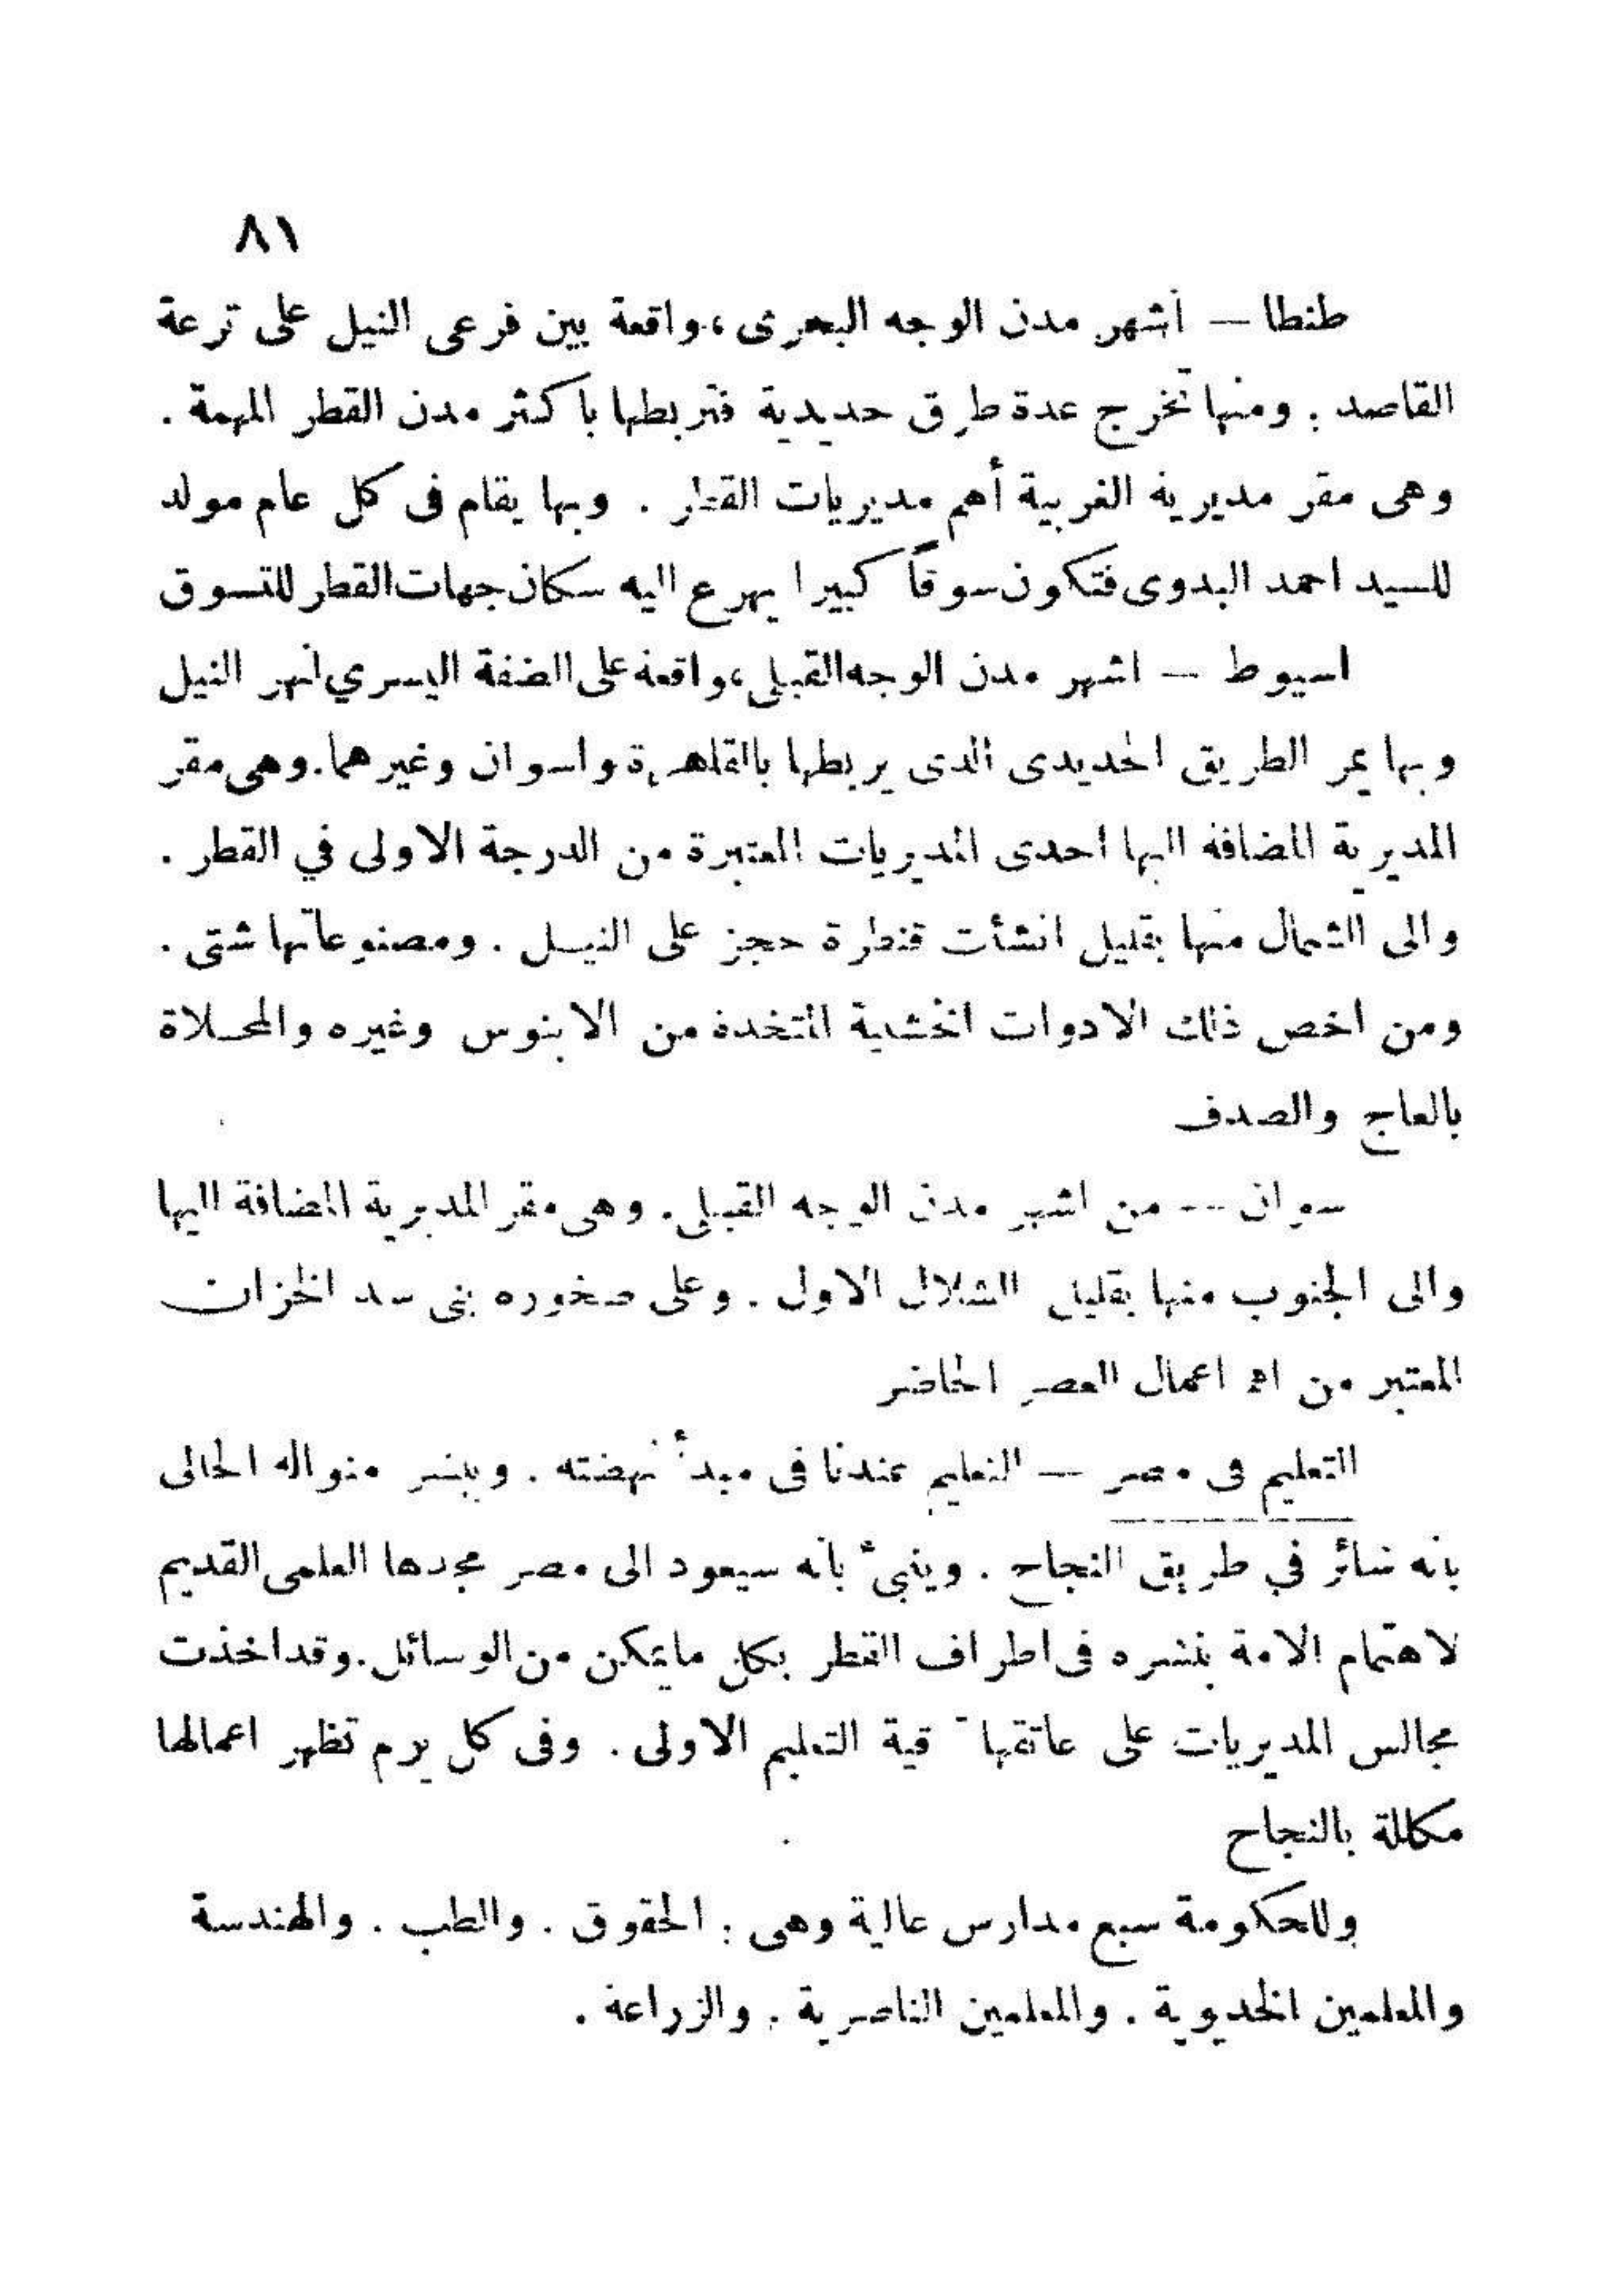 ٨١
طنطا — أشهر مدن الوجه البحرى ، واقعة بين فرعى النيل على ترعة
القاصد . ومنها تخرج عدة طرق حديدية فتربطها با كثر مدن القطر المهمة .
وهى مقر مديرية الغربية أهم مديريات القطر . وبها يقام فى كل عام مولد
للسيد احمد البدوى فتكون سوقاً كبيرا يهرع اليه سكان جهات القطر للتسوق
اسيوط — اشهر مدن الوجه القبلى ، واقعة على الضفة اليسري لنهر النيل
وبها يمر الطريق الحديدى الذى يربطها بالقاهرة واسوان وغيرهما . وهى مقر
المديرية المضافة اليها احدى المديريات المعتبرة من الدرجة الاولى في القطر .
والى الشمال منها بقليل انشأت قنطرة حجز على النيل . ومصنوعاتها شتى .
ومن اخص ذلك الادوات الخشبية المتخذة من الابنوس وغيره والمحلاة
بالعاج والصدف
سوان -- من اشهر مدن الوجه القبلى . وهى مقر المديرية المضافة اليها
والى الجنوب منها بقليل الشلال الاول . وعلى صخوره بنى سد الخزان
المعتبر من اهم اعمال العصر الحاضر
التعليم فى مصر — التعليم عندنا فى مبدأ نهضته . ويبشر منواله الحالى
بانه سائر في طريق النجاح . وينبئ بأنه سيعود الى مصر مجدها العلمى القديم
لاهتمام الامة بنشره فى اطراف القطر بكل مايمكن من الوسائل . وقد اخذت
مجالس المديريات على عاتقها قية التعليم الاولى . وفى كل يوم تظهر اعمالها
مكللة بالنجاح
وللحكومة سبع مدارس عالية وهى : الحقوق . والطب . والهندسة
والمعلمين الخديوية . والمعلمين الناصرية . والزراعة .